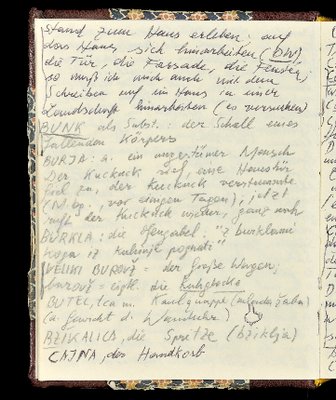 Stand zum Haus erleben, auf
das Haus sich hinarbeiten (bzw.
die Tür, die Fassade, die Fenster),
so muß ich mich auch mit dem
Schreiben auf ein Haus in einer
Landschaft hinarbeiten (es versuchen)
BUNK als Subst.: der Schall eines
fallenden Körpers
BURJA: a. ein ungestümer Mensch
Der Kuckuck rief, eine Haustür
fiel zu, der Kuckuck verstummte
(vor einigen Tagen); jetzt
ruft der Kuckuck wieder, ganz nah
BURKLA: die Heugabel. "Z burklami
nogo iz kuhinje pognati"
VELIKI BUROVŽ = der große Wagen;
burovž = eigtl. die Kuhglocke
BUTEL, tca m. Kaulquappe
(a. Gewicht d. Wanduhr)
BZIKALICA, die Spritze (bziklja)
CAJNA, der Handkorb